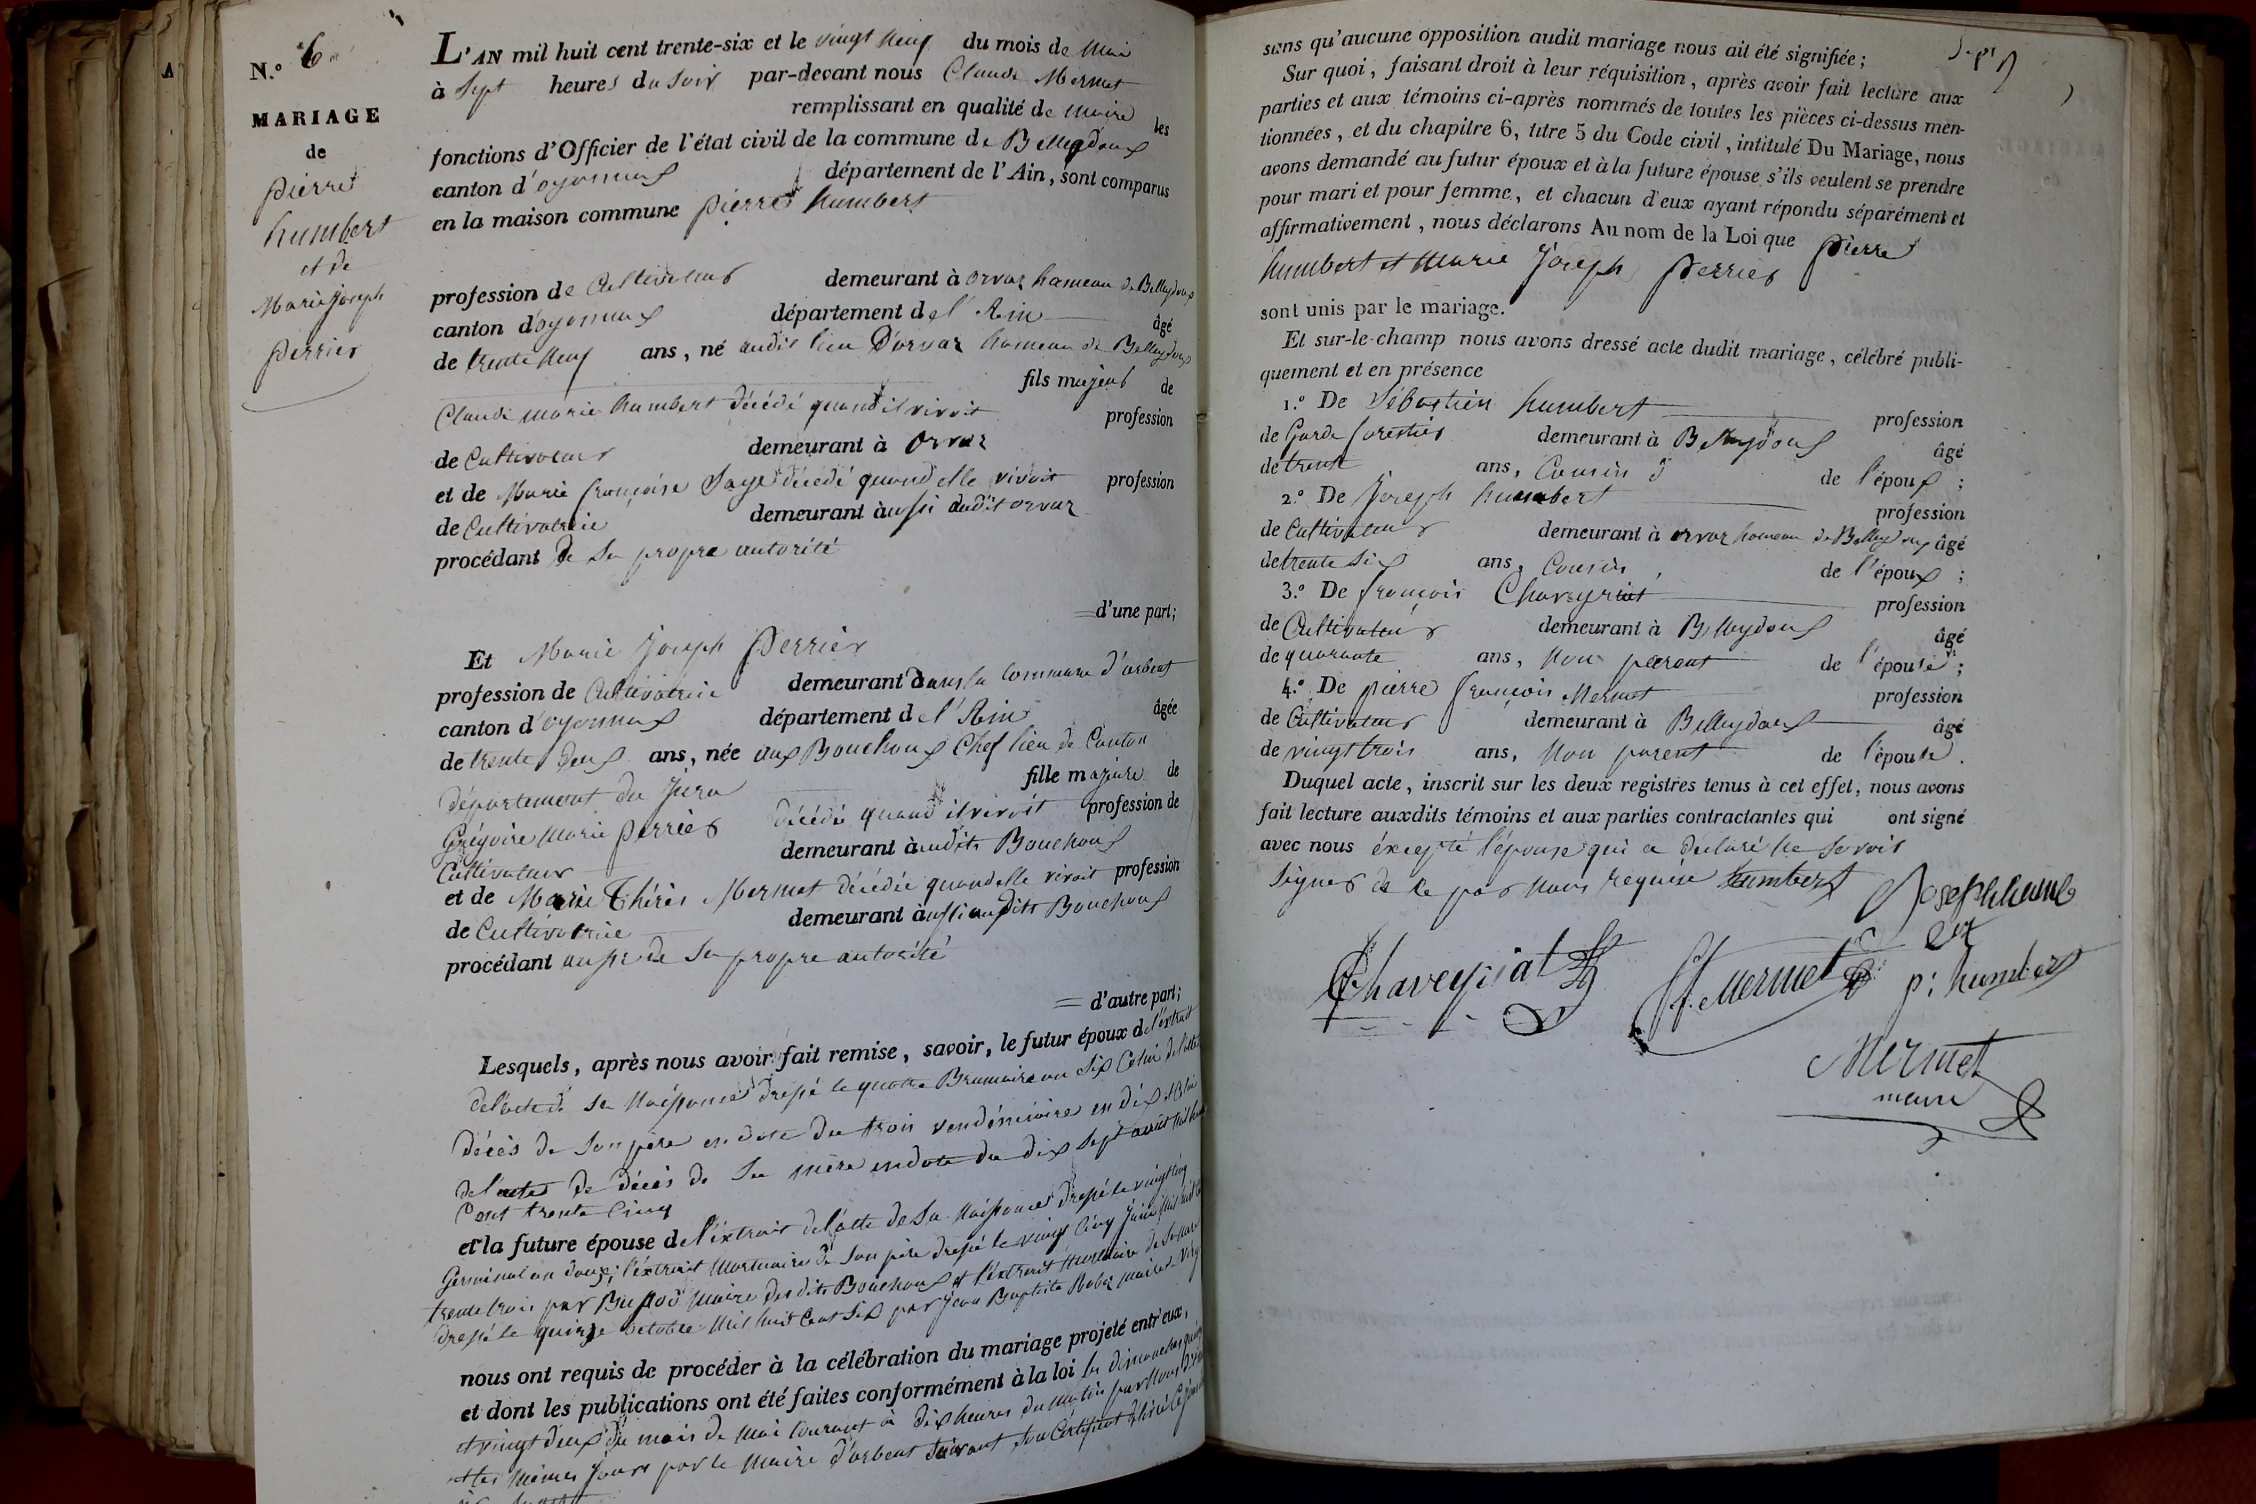 N.° 6
MARIAGE
de
pierre
humbert
et de
Marie joseph
perrier
L'AN mil huit cent trente-six et le vingt neuf du mois de Mai
à Sept heures du Soir par-devant nous Claude Mermet
remplissant en qualité de maire les
fonctions d'Officier de l'état civil de la commune de Belleydoux
canton d'oyonnax département de l'Ain, sont comparus
en la maison commune pierre humbert
profession de Cultivateur demeurant à orvaz hameau de Belleydoux
canton d'oyonnax département de l'Ain âgé
de trente neuf ans, né audit lieu D'orvaz hameau de Belleydoux
fils majeur de
Claude marie humbert décédé quand il vivoit profession
de Cultivateur demeurant à orvaz
et de Marie françoise Saye décédé quand elle vivoit profession
de Cultivatrice demeurant aussi audit orvaz
procédant de Sa propre autorité
d'une part;
Et Marie Joseph Perrier
profession de Cultivatrice demeurant Dans la Commune d'arbent
canton d'oyonnax département de l'Ain âgée
de trente Deux ans, née aux Bouchoux Chef lieu de Canton
Département du Jura fille majeure de
Grégoire Marie perrier décédé quand il vivoit profession de
Cultivateur demeurant auxdits Bouchoux
et de Marie Thérès Mermet décédée quand elle vivoit profession
de Cultivatrice demeurant aussi auxdits Bouchoux
procédant aussi de Sa propre autorité
d'autre part;
Lesquels, après nous avoir fait remise, savoir, le futur époux de l'extrait
de l'acte de Sa Naissance dressé le quatre Brumaire an Six Celui de l'acte
décès de Son père en date du trois vendémiaire an dix et Celui
de l'acte de décès de Sa mère en date du dix Sept août mil huit
Cent trente Cinq
et la future épouse de l'extrait de l'acte de Sa Naissance dressé le vingt cinq
Germinal an douze; l'extrait Mortuaire de Son père dressé le vingt Cinq Juin Mil huit Cent
trente trois par maire desdits Bouchoux et l'extrait Mortuaire de Sa mère
dressé le quinze octobre Mil huit Cent Six par Jean Baptiste maire
nous ont requis de procéder à la célébration du mariage projeté entr'eux,
et dont les publications ont été faites conformément à la loi les dimanches quinze
et vingt deux du mois de Mai Courant à dix heures du Matin par Nous
et les mêmes Jours par le Maire d'arbent Suivant Son Certificat délivré
sans qu'aucune opposition audit mariage nous ait été signifiée;
Sur quoi, faisant droit à leur réquisition, après avoir fait lecture aux
parties et aux témoins ci-après nommés de toutes les pièces ci-dessus men-
tionnées, et du chapitre 6, titre 5 du Code civil, intitulé Du Mariage, nous
avons demandé au futur époux et à la future épouse s'ils veulent se prendre
pour mari et pour femme, et chacun d'eux ayant répondu séparément et
affirmativement, nous déclarons Au nom de la Loi que Pierre
humbert et Marie Joseph perrier
sont unis par le mariage.
Et sur-le-champ nous avons dressé acte dudit mariage, célébré publi-
quement et en présence
1.° De Sébastien humbert profession
de Garde forestier demeurant à Belleydoux âgé
de trente ans, Cousin de l'époux;
2.° De Joseph humbert profession
de Cultivateur demeurant à orvaz hameau de Belleydoux âgé
de trente Six ans, Cousin de l'époux;
3.° De françois Chaveyriat profession
de Cultivateur demeurant à Belleydoux âgé
de quarante ans, Non parent de l'épouse;
4.° De pierre françois Mermet profession
de Cultivateur demeurant à Belleydoux âgé
de vingt trois ans, Non parent de l'épouse.
Duquel acte, inscrit sur les deux registres tenus à cet effet, nous avons
fait lecture auxdits témoins et aux parties contractantes qui ont signé
avec nous éxcepté l'épouse qui a déclaré ne Savoir
Signer de ce par Nous requise humbert
Joseph humb
ert
Chaveyriat
Mermet
p: humbert
Mermet
maire